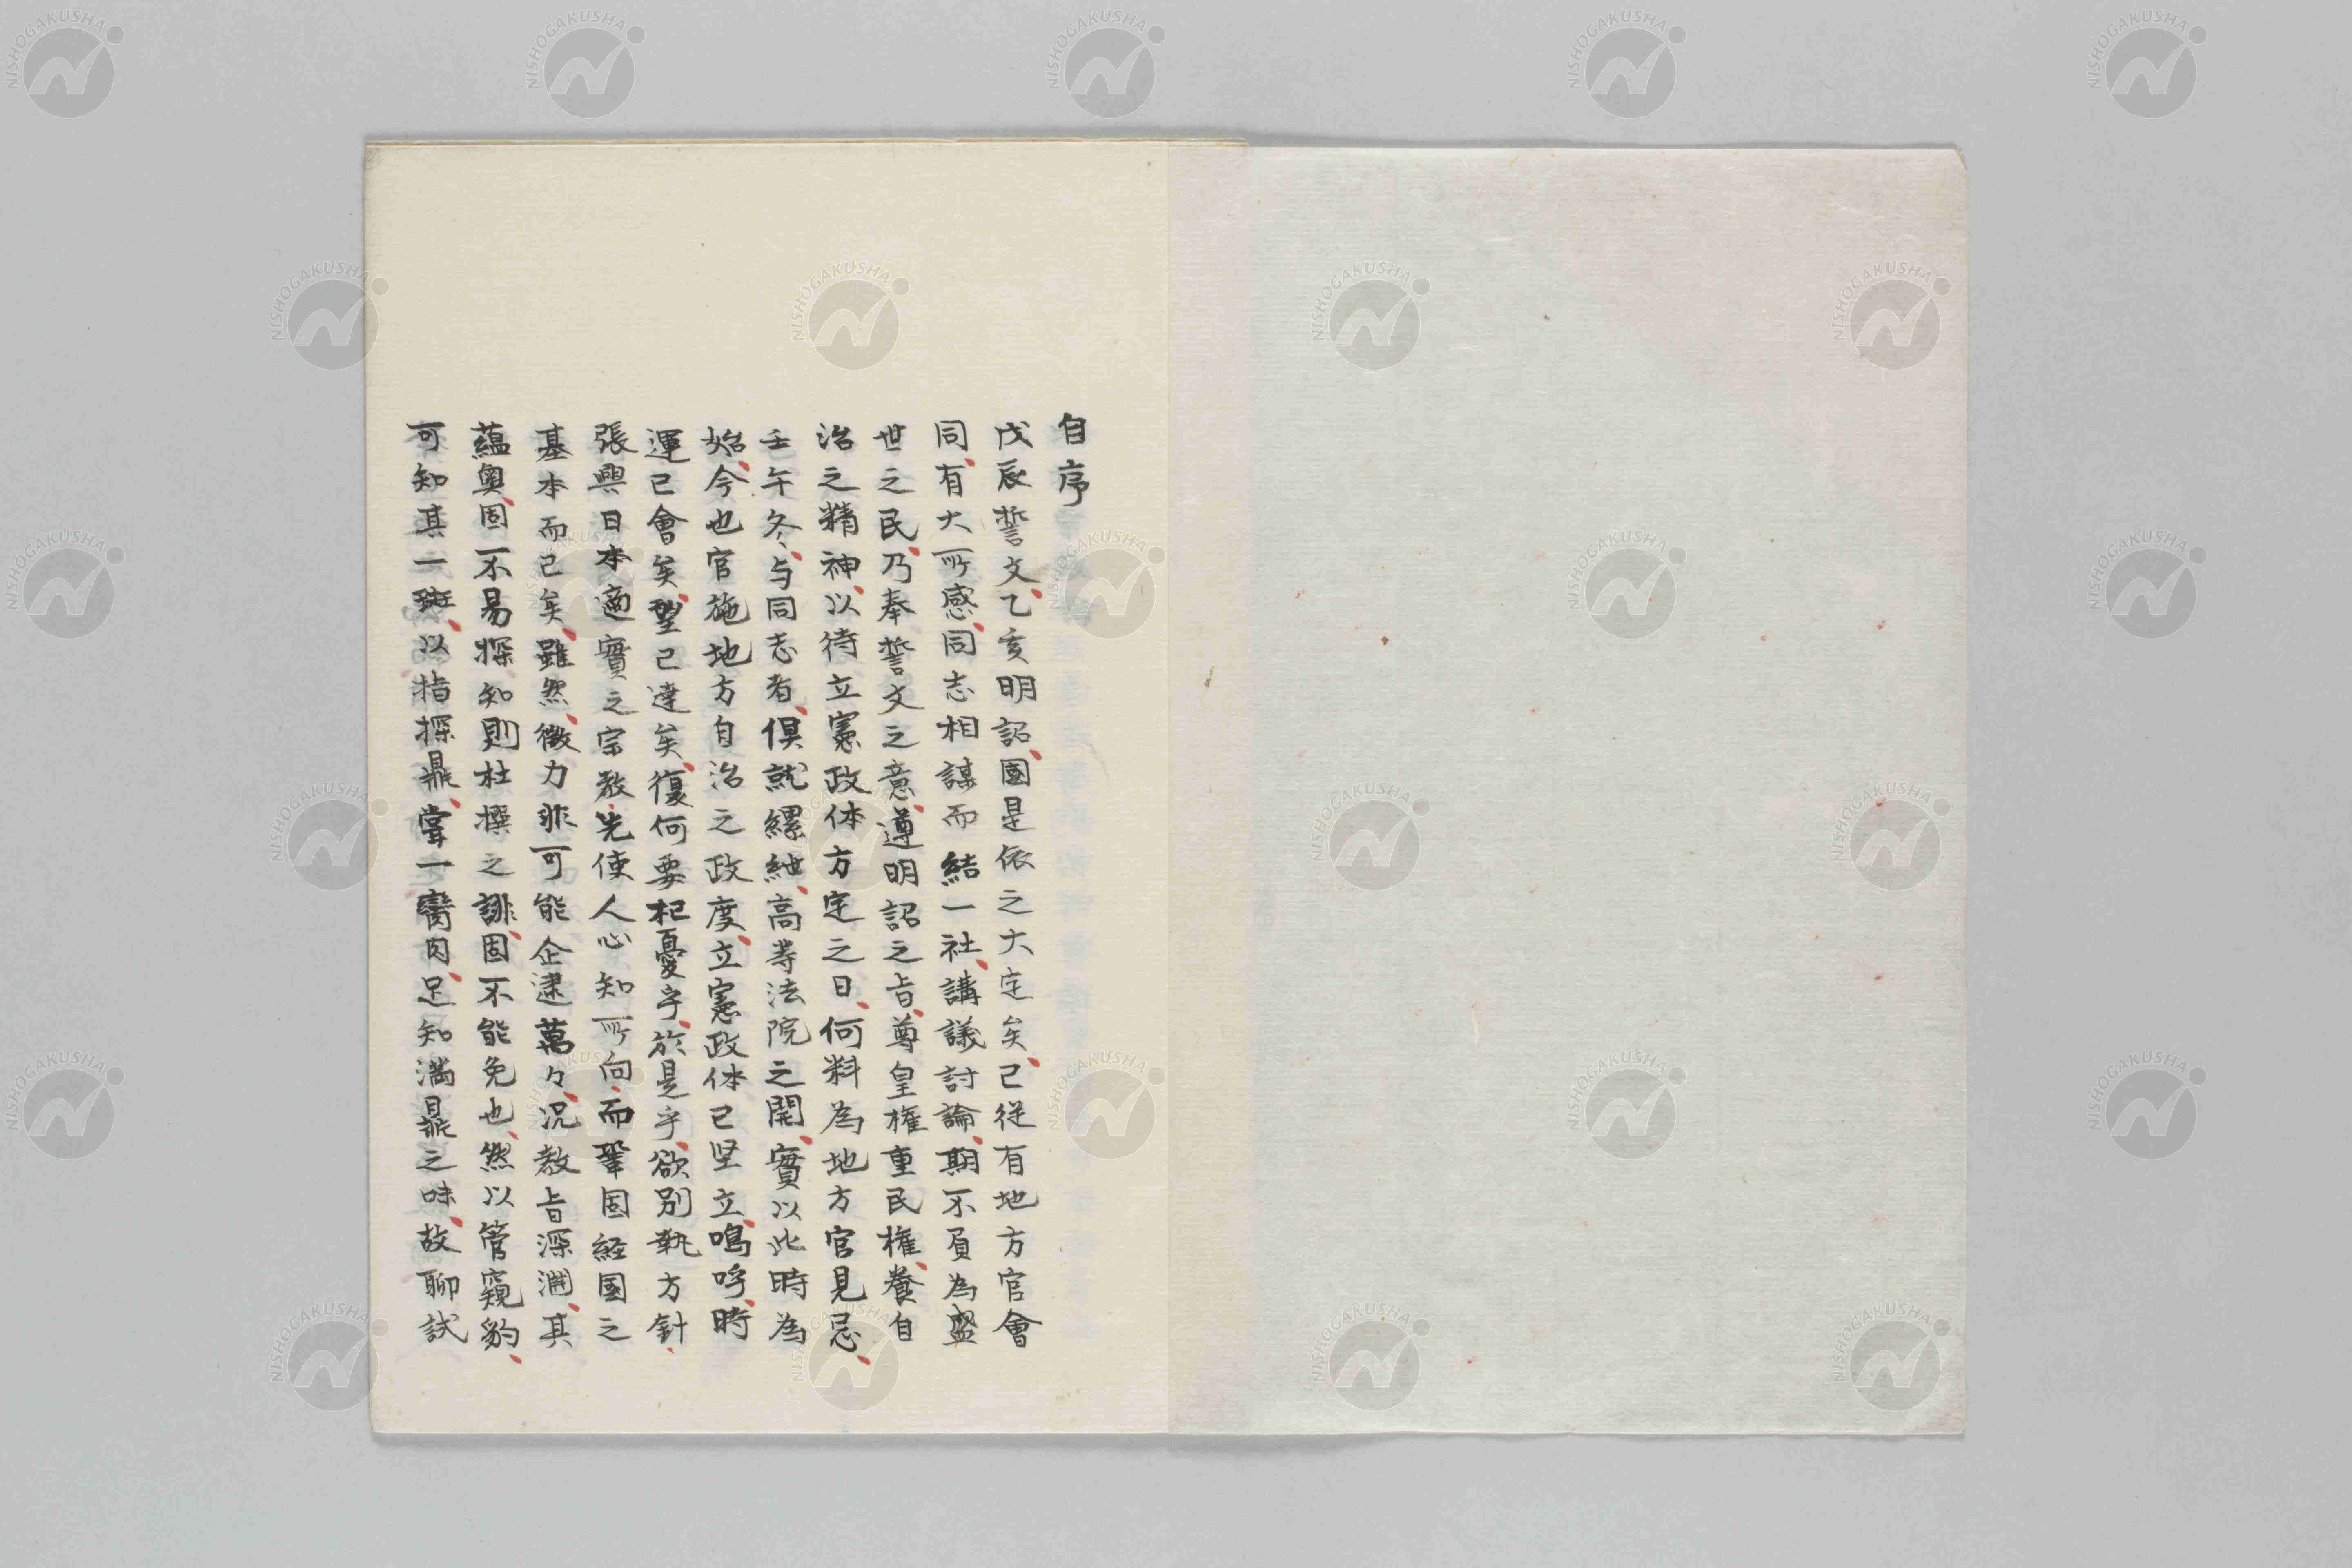 自序
戊辰誓文、乙亥明詔、國是依之大定矣、已從有地方官會
同、有大所感、同志相謀而結一社、講議討論、期不負為盛
世之民、乃奉誓文之意、遵明詔之旨、尊皇權重民權、養自
治之精神、以待立憲政体方定之日、何料為地方官見忌、
壬午冬、与同志者、倶就縲紲、高等法院之開、實以此時為
始、今也官施地方自治之政度、立憲政体已坚立、鳴呼、時
運已會矣、望已達矣、復何要杞憂乎、於是乎、欲別執方針、
張興日本適實之宗教、先使人心知所向、而鞏固経國之
基本而已矣、雖然、微力非可能企逮萬々、况教旨深淵、其
蘊奥、固不易探知則杜撰之誹、固不能免也、然以管窺豹、
可知其一斑、以指探鼎、甞一臠肉、足知満鼎之味、故聊試
NISHOGAKUSHA